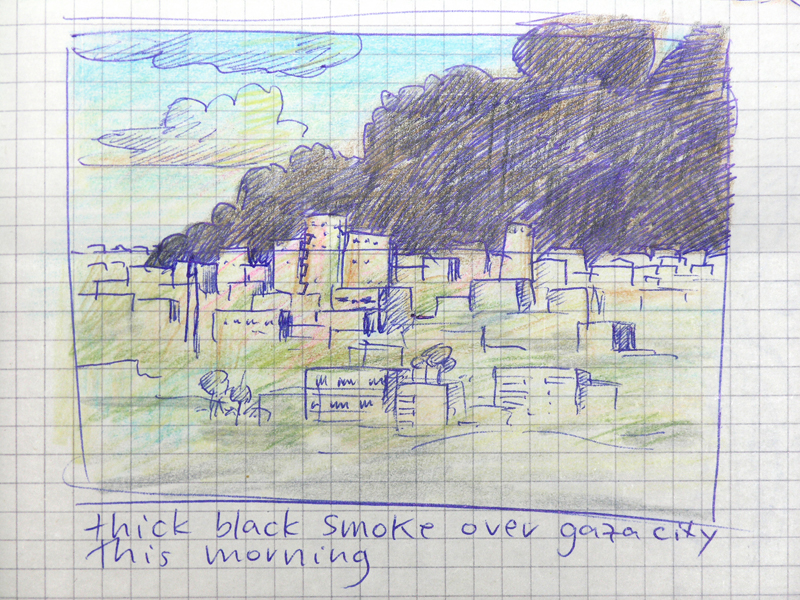 thick black smoke over gaza city
this morning